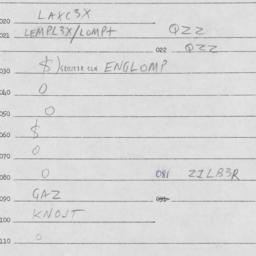 LAXC3X
020
021 LEMPL3X/LOMP+ QZZ
022 QZZ
030 $) ENGLOMP
040 O
050 O
060 $
070 O
080 O 081 ZILB3R
090 GAZ 091
100 KNOJT
110 O